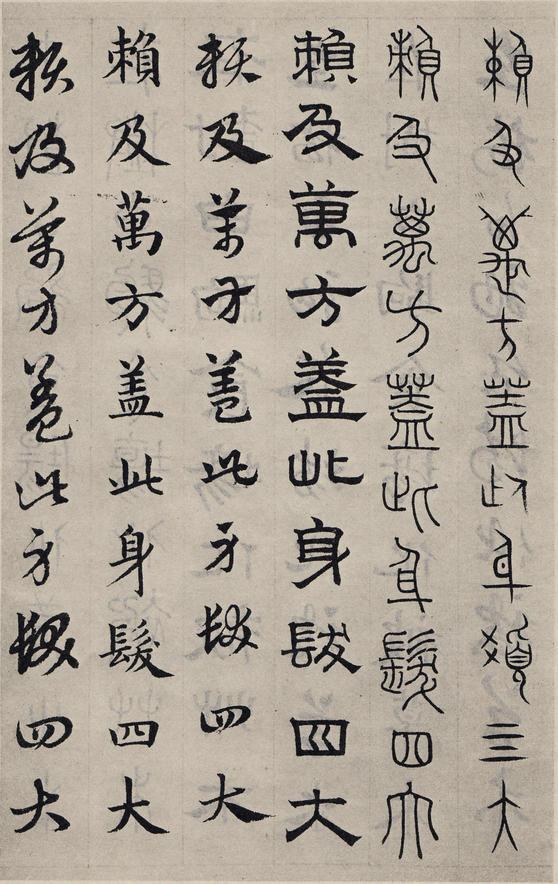 賴及萬方蓋此身髮三大
賴及萬方蓋此身髮四大
賴及萬方蓋此身髮四大
賴及萬方蓋此身髮四大
賴及萬方蓋此身髮四大
賴及萬方蓋此身髮四大